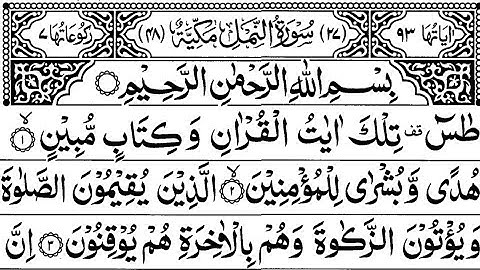 اٰيَاتُهَا ٩٣ (٢٧) سُوْرَةُ النَّمْلِ مَكِّيَّةٌ (٤٨) رُكُوْعَاتُهَا ٧
بِسْمِ اللهِ الرَّحْمٰنِ الرَّحِيْمِ
طٰسٓ قف تِلْكَ اٰيٰتُ الْقُرْاٰنِ وَكِتَابٍ مُّبِيْنٍ ۙ﴿١﴾
هُدًى وَّبُشْرٰى لِلْمُؤْمِنِيْنَ ۙ﴿٢﴾ الَّذِيْنَ يُقِيْمُوْنَ الصَّلٰوةَ
وَيُؤْتُوْنَ الزَّكٰوةَ وَهُمْ بِالْاٰخِرَةِ هُمْ يُوْقِنُوْنَ ﴿٣﴾ اِنَّ